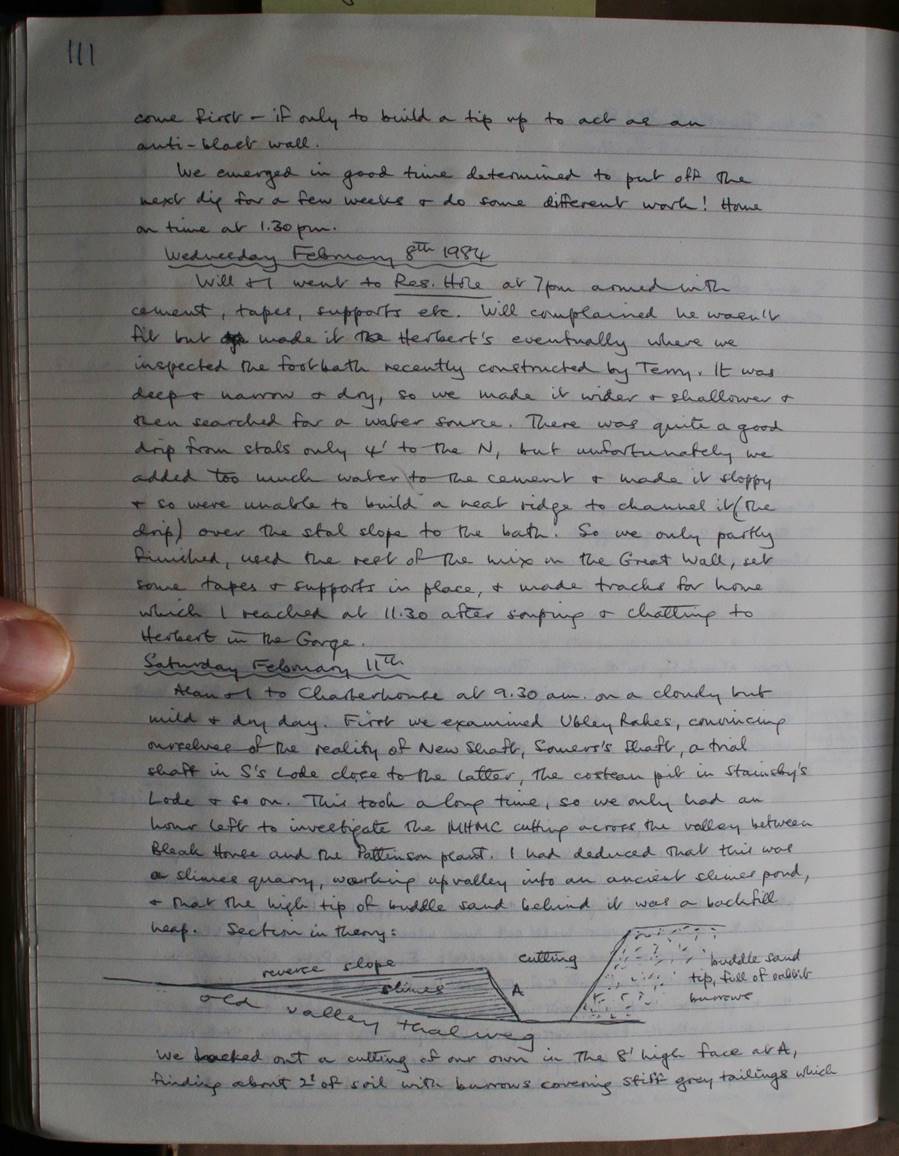 111
come first - if only to build a tip up to act as an
anti-blast wall.
We emerged in good time determined to put off the
next dig for a few weeks & do some different work! Home
on time at 1.30 pm.
Wednesday February 8th 1984
Will & I went to Res. Hole at 7pm armed with
cement, tapes, supports etc. Will complained he wasn't
fit but made it to Herbert's eventually where we
inspected the footbath recently constructed by Terry. It was
deep & narrow & dry, so we made it wider & shallower &
then searched for a water source. There was quite a good
drip from stals only 4' to the N, but unfortunately we
added too much water to the cement & made it sloppy
& so were unable to build a neat ridge to channel it (the
drip) over the stal slope to the bath. So we only partly
finished, used the rest of the mix on the Great Wall, set
some tapes & supports in place, & made tracks for home
which I reached at 11.30 after souping & chatting to
Herbert in the Gorge.
Saturday February 11th
Alan & I to Charterhouse at 9.30 am. on a cloudy but
mild & dry day. First we examined Ubley Rakes, convincing
ourselves of the reality of New Shaft, Somers's Shaft, a trial
shaft in S's Lode close to the latter, the costean pit in Stainsby's
Lode & so on. This took a long time, so we only had an
hour left to investigate the MHMC cutting across the valley between
Bleak House and the Pattinson plant. I had deduced that this was
a slimes quarry, working upvalley into an ancient slimes pond,
& that the high tip of buddle sand behind it was a backfill
heap. Section in theory:
reverse slope
cutting
buddle sand
tip, full of rabbit
burrows
slimes
A
old valley thalweg
We hacked out a cutting of our own in the 8' high face at A,
finding about 2' of soil with burrows covering stiff grey tailings which